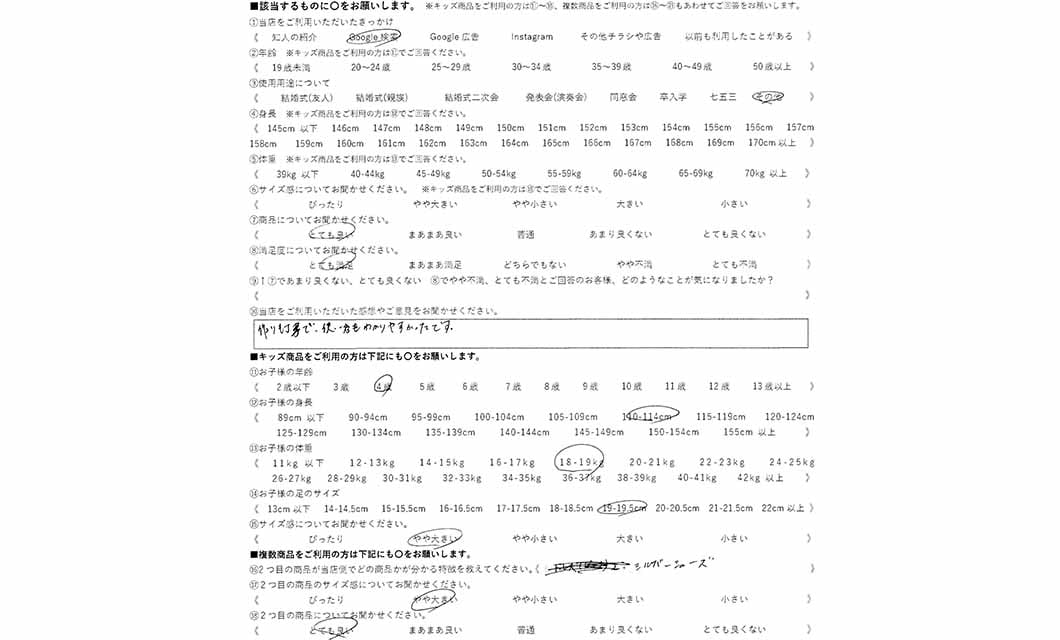 ■該当するものに〇をお願いします。 ※キッズ商品をご利用の方は⑪～⑮、複数商品をご利用の方は⑯～⑱もあわせてご回答をお願いします。
①当店をご利用いただいたきっかけ
《 知人の紹介 Google 検索 Google 広告 Instagram その他チラシや広告 以前も利用したことがある 》
②年齢 ※キッズ商品をご利用の方は⑪でご回答ください。
《 19歳未満 20～24歳 25～29歳 30～34歳 35～39歳 40～49歳 50歳以上 》
③使用用途について
《 結婚式(友人) 結婚式(親族) 結婚式二次会 発表会(演奏会) 同窓会 卒入学 七五三 その他 》
④身長 ※キッズ商品をご利用の方は⑫でご回答ください。
《 145cm 以下 146cm 147cm 148cm 149cm 150cm 151cm 152cm 153cm 154cm 155cm 156cm 157cm
158cm 159cm 160cm 161cm 162cm 163cm 164cm 165cm 166cm 167cm 168cm 169cm 170cm 以上 》
⑤体重 ※キッズ商品をご利用の方は⑬でご回答ください。
《 39kg 以下 40-44kg 45-49kg 50-54kg 55-59kg 60-64kg 65-69kg 70kg 以上 》
⑥サイズ感についてお聞かせください。 ※キッズ商品をご利用の方は⑮でご回答ください。
《 ぴったり やや大きい やや小さい 大きい 小さい 》
⑦商品についてお聞かせください。
《 とても良い まあまあ良い 普通 あまり良くない とても良くない 》
⑧満足度についてお聞かせください。
《 とても満足 まあまあ満足 どちらでもない やや不満 とても不満 》
⑨！⑦であまり良くない、とても良くない ⑧でやや不満、とても不満とご回答のお客様、どのようなことが気になりましたか？
《 》
⑩当店をご利用いただいた感想やご意見をお聞かせください。
作りも丁寧で、使い方もわかりやすかったです。
■キッズ商品をご利用の方は下記にも〇をお願いします。
⑪お子様の年齢
《 2歳以下 3歳 4歳 5歳 6歳 7歳 8歳 9歳 10歳 11歳 12歳 13歳以上 》
⑫お子様の身長
《 89cm 以下 90-94cm 95-99cm 100-104cm 105-109cm 110-114cm 115-119cm 120-124cm
125-129cm 130-134cm 135-139cm 140-144cm 145-149cm 150-154cm 155cm 以上 》
⑬お子様の体重
《 11kg 以下 12-13kg 14-15kg 16-17kg 18-19kg 20-21kg 22-23kg 24-25kg
26-27kg 28-29kg 30-31kg 32-33kg 34-35kg 36-37kg 38-39kg 40-41kg 42kg 以上 》
⑭お子様の足のサイズ
《 13cm 以下 14-14.5cm 15-15.5cm 16-16.5cm 17-17.5cm 18-18.5cm 19-19.5cm 20-20.5cm 21-21.5cm 22cm 以上 》
⑮サイズ感についてお聞かせください。
《 ぴったり やや大きい やや小さい 大きい 小さい 》
■複数商品をご利用の方は下記にも〇をお願いします。
⑯2つ目の商品が当店側でどの商品かが分かる特徴を教えてください。《 シルバーシューズ 》
⑰2つ目の商品のサイズ感についてお聞かせください。
《 ぴったり やや大きい やや小さい 大きい 小さい 》
⑱2つ目の商品についてお聞かせください。
《 とても良い まあまあ良い 普通 あまり良くない とても良くない 》